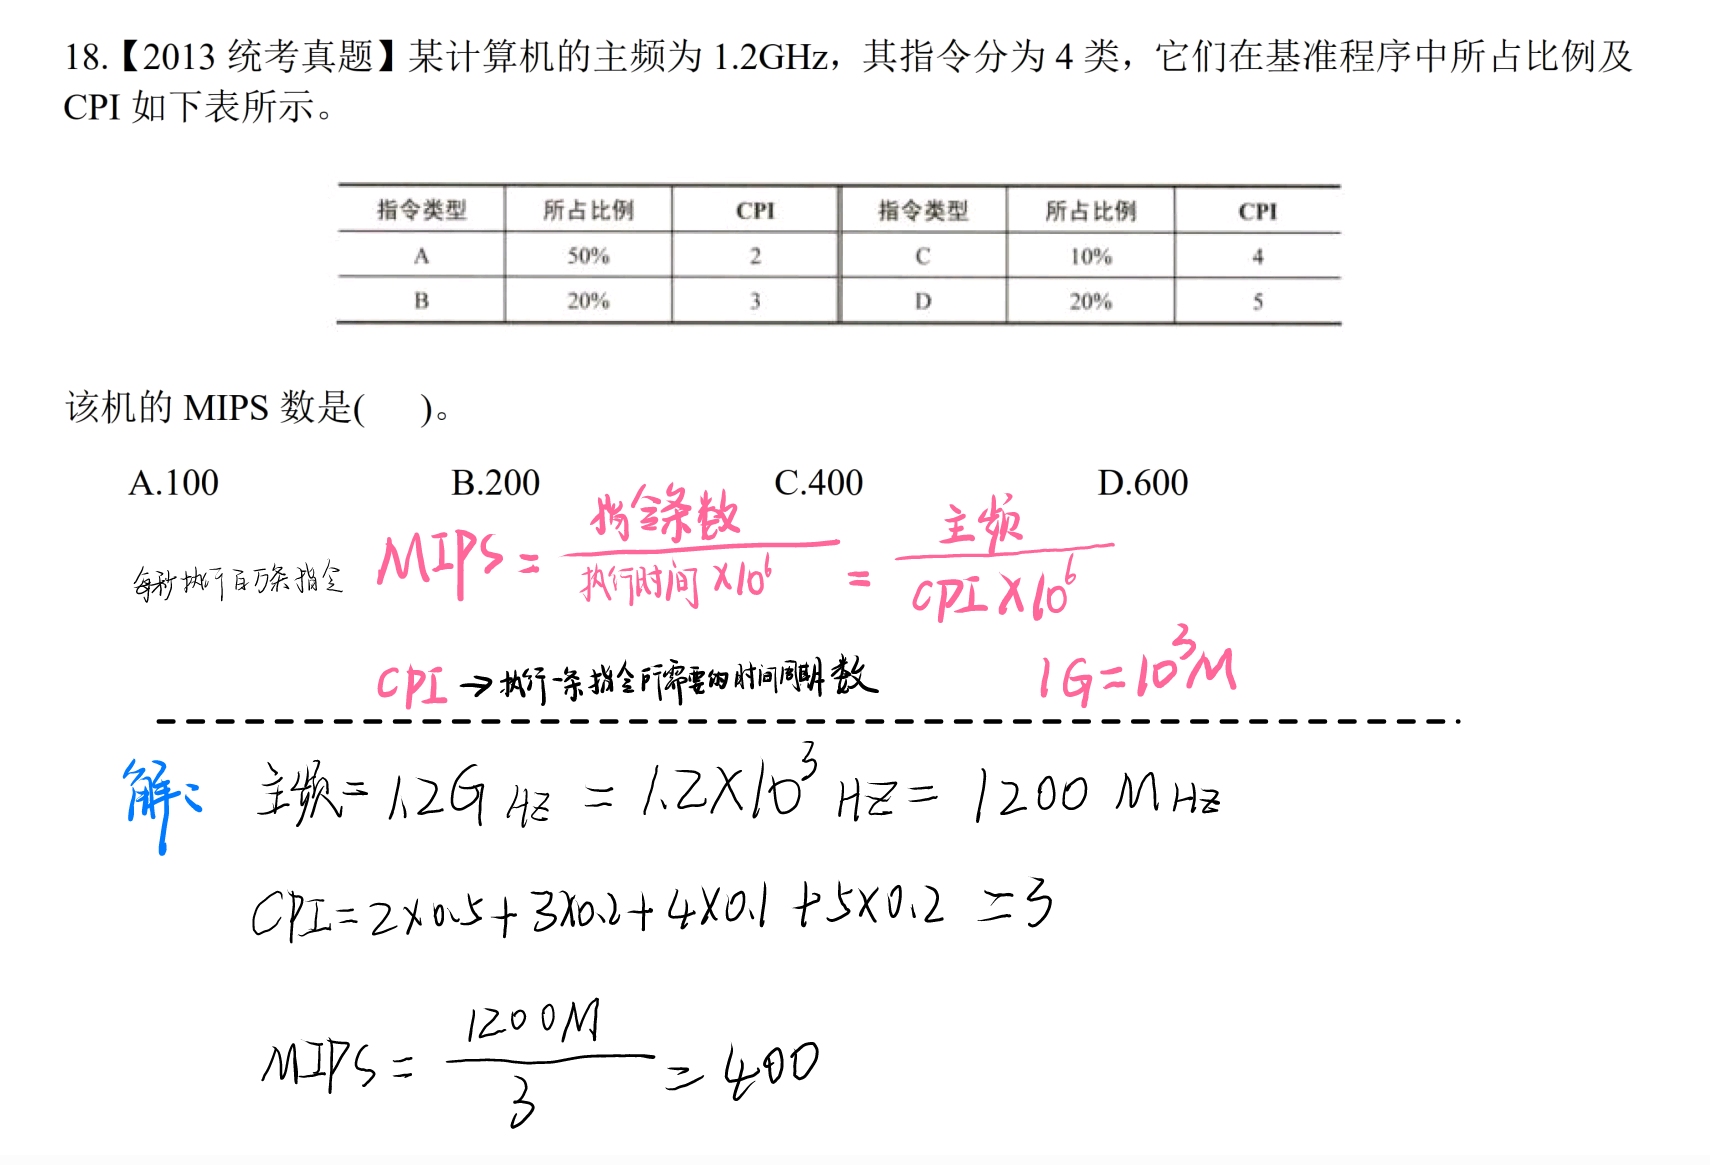 18.【2013 统考真题】某计算机的主频为 1.2GHz，其指令分为 4 类，它们在基准程序中所占比例及
CPI 如下表所示。
指令类型 所占比例 CPI 指令类型 所占比例 CPI
A 50% 2 C 10% 4
B 20% 3 D 20% 5
该机的 MIPS 数是( )。
A.100 B.200 C.400 D.600
每秒执行百万条指令 MIPS = 指令条数 / 执行时间 ×10⁶ = 主频 / CPI ×10⁶
CPI → 执行一条指令所需要的时间周期数 1G=10³M
解： 主频 = 1.2G HZ = 1.2×10³ HZ = 1200 M HZ
CPI = 2×0.5+3×0.2+4×0.1+5×0.2 =3
MIPS = 1200M / 3 = 400